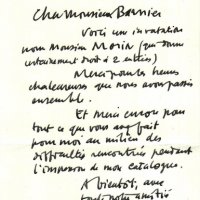 Cher Monsieur Barrier
Voici une invitation
pour Monsieur Morin (qui donne
certainement droit à 2 entrées)
Merci pour les heures
chaleureuses que nous avons passées
ensemble.
Et merci encore pour
tout ce que vous avez fait
pour moi au milieu des
difficultés rencontrées pendant
l'impression de mon catalogue.
A bientôt, avec
toute notre amitié